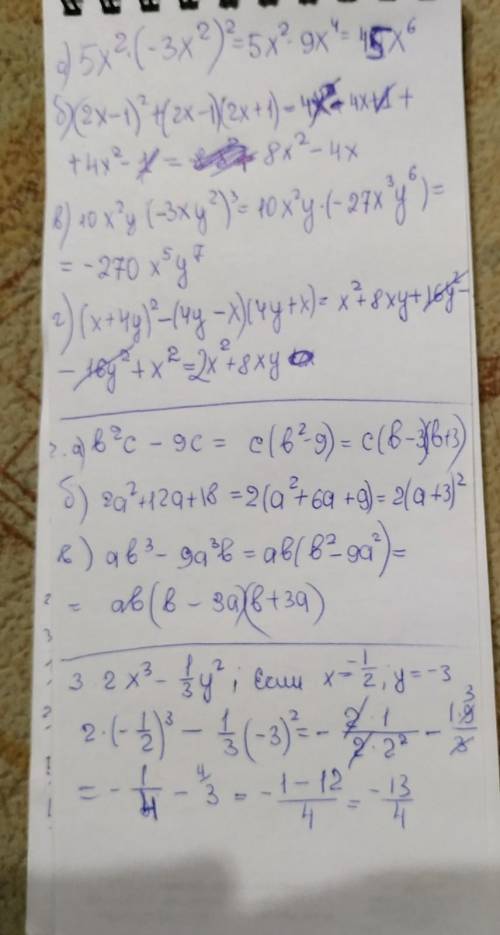 а) 5x²·(-3x²)² = 5x²·9x⁴ = 45x⁶
б) (2x-1)² + (2x-1)(2x+1) = 4x² - 4x + 1 +
+ 4x² - 1 = 8x² - 4x
в) 10x²y (-3xy²)³ = 10x²y·(-27x³y⁶) =
= -270 x⁵y⁷
г) (x+4y)² - (4y-x)(4y+x) = x² + 8xy + 16y² -
- 16y² + x² = 2x² + 8xy
2. а) в²с - 9с = с(в²-9) = с(в-3)(в+3)
б) 2а²+12а+18 = 2(а²+6а+9) = 2(а+3)²
в) ав³ - 9а³в = ав(в²-9а²) =
= ав(в - 3а)(в+3а)
3 2x³ - 1/3 y²; Если x = -1/2, y = -3
2·(-1/2)³ - 1/3 (-3)² = - 2·1/2·2² - 1·9/3 3
= - 1/4 - 4/3 = - 1-12/4 = - 13/4